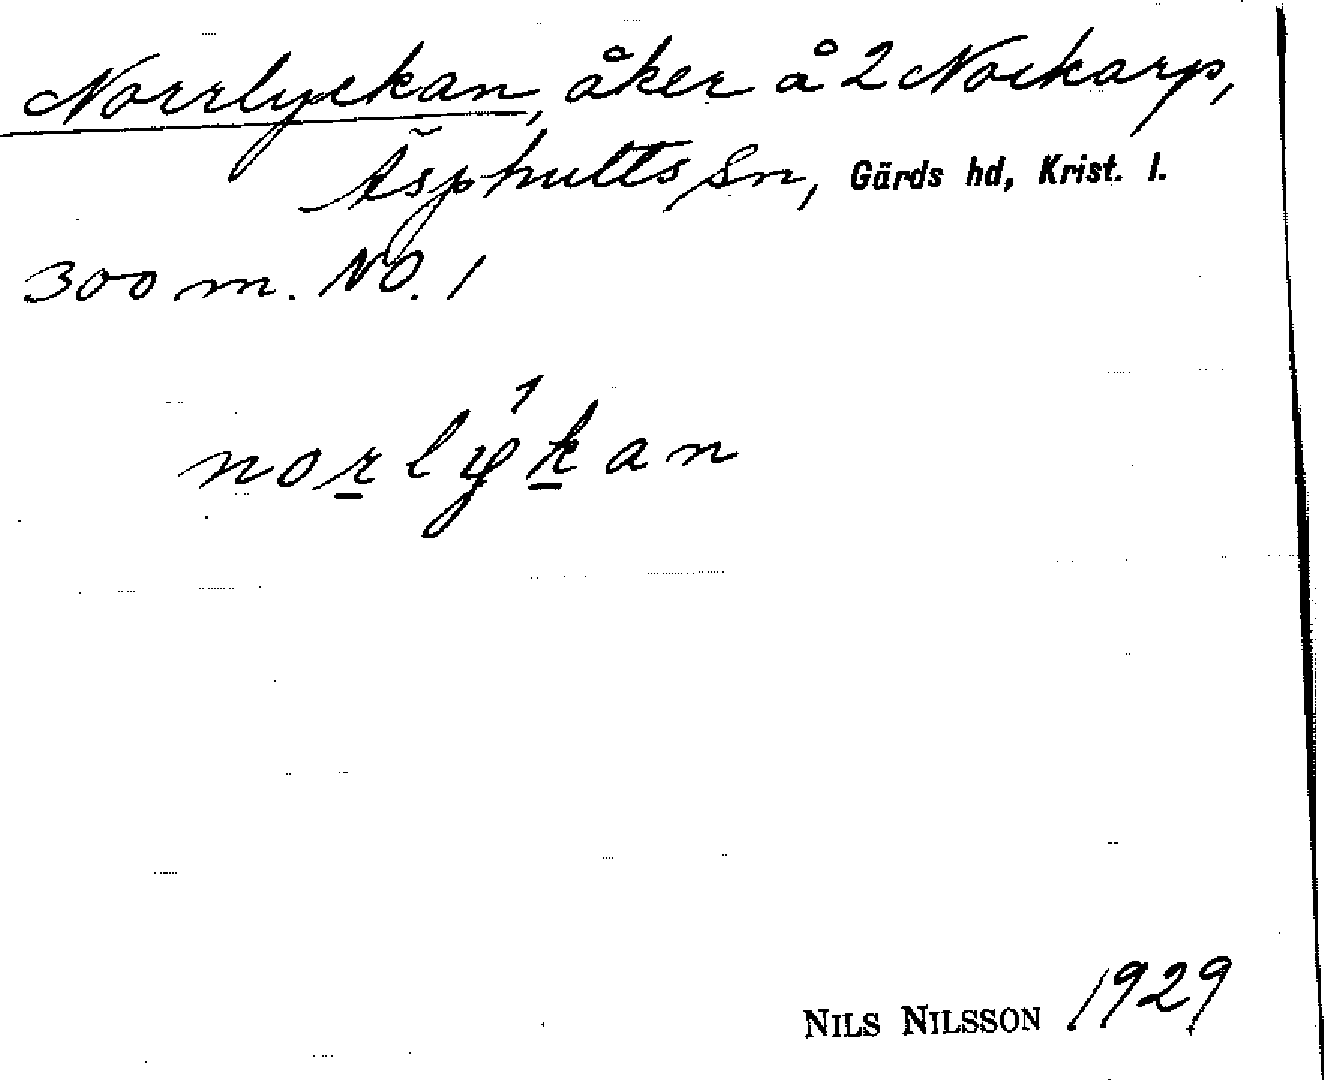 Norrlyckan, åker å 2 Nockarp,
Äsphults sn, Gärds hd, Krist. l.
300 m. NO. 1
norlýkan
NILS NILSSON 1929